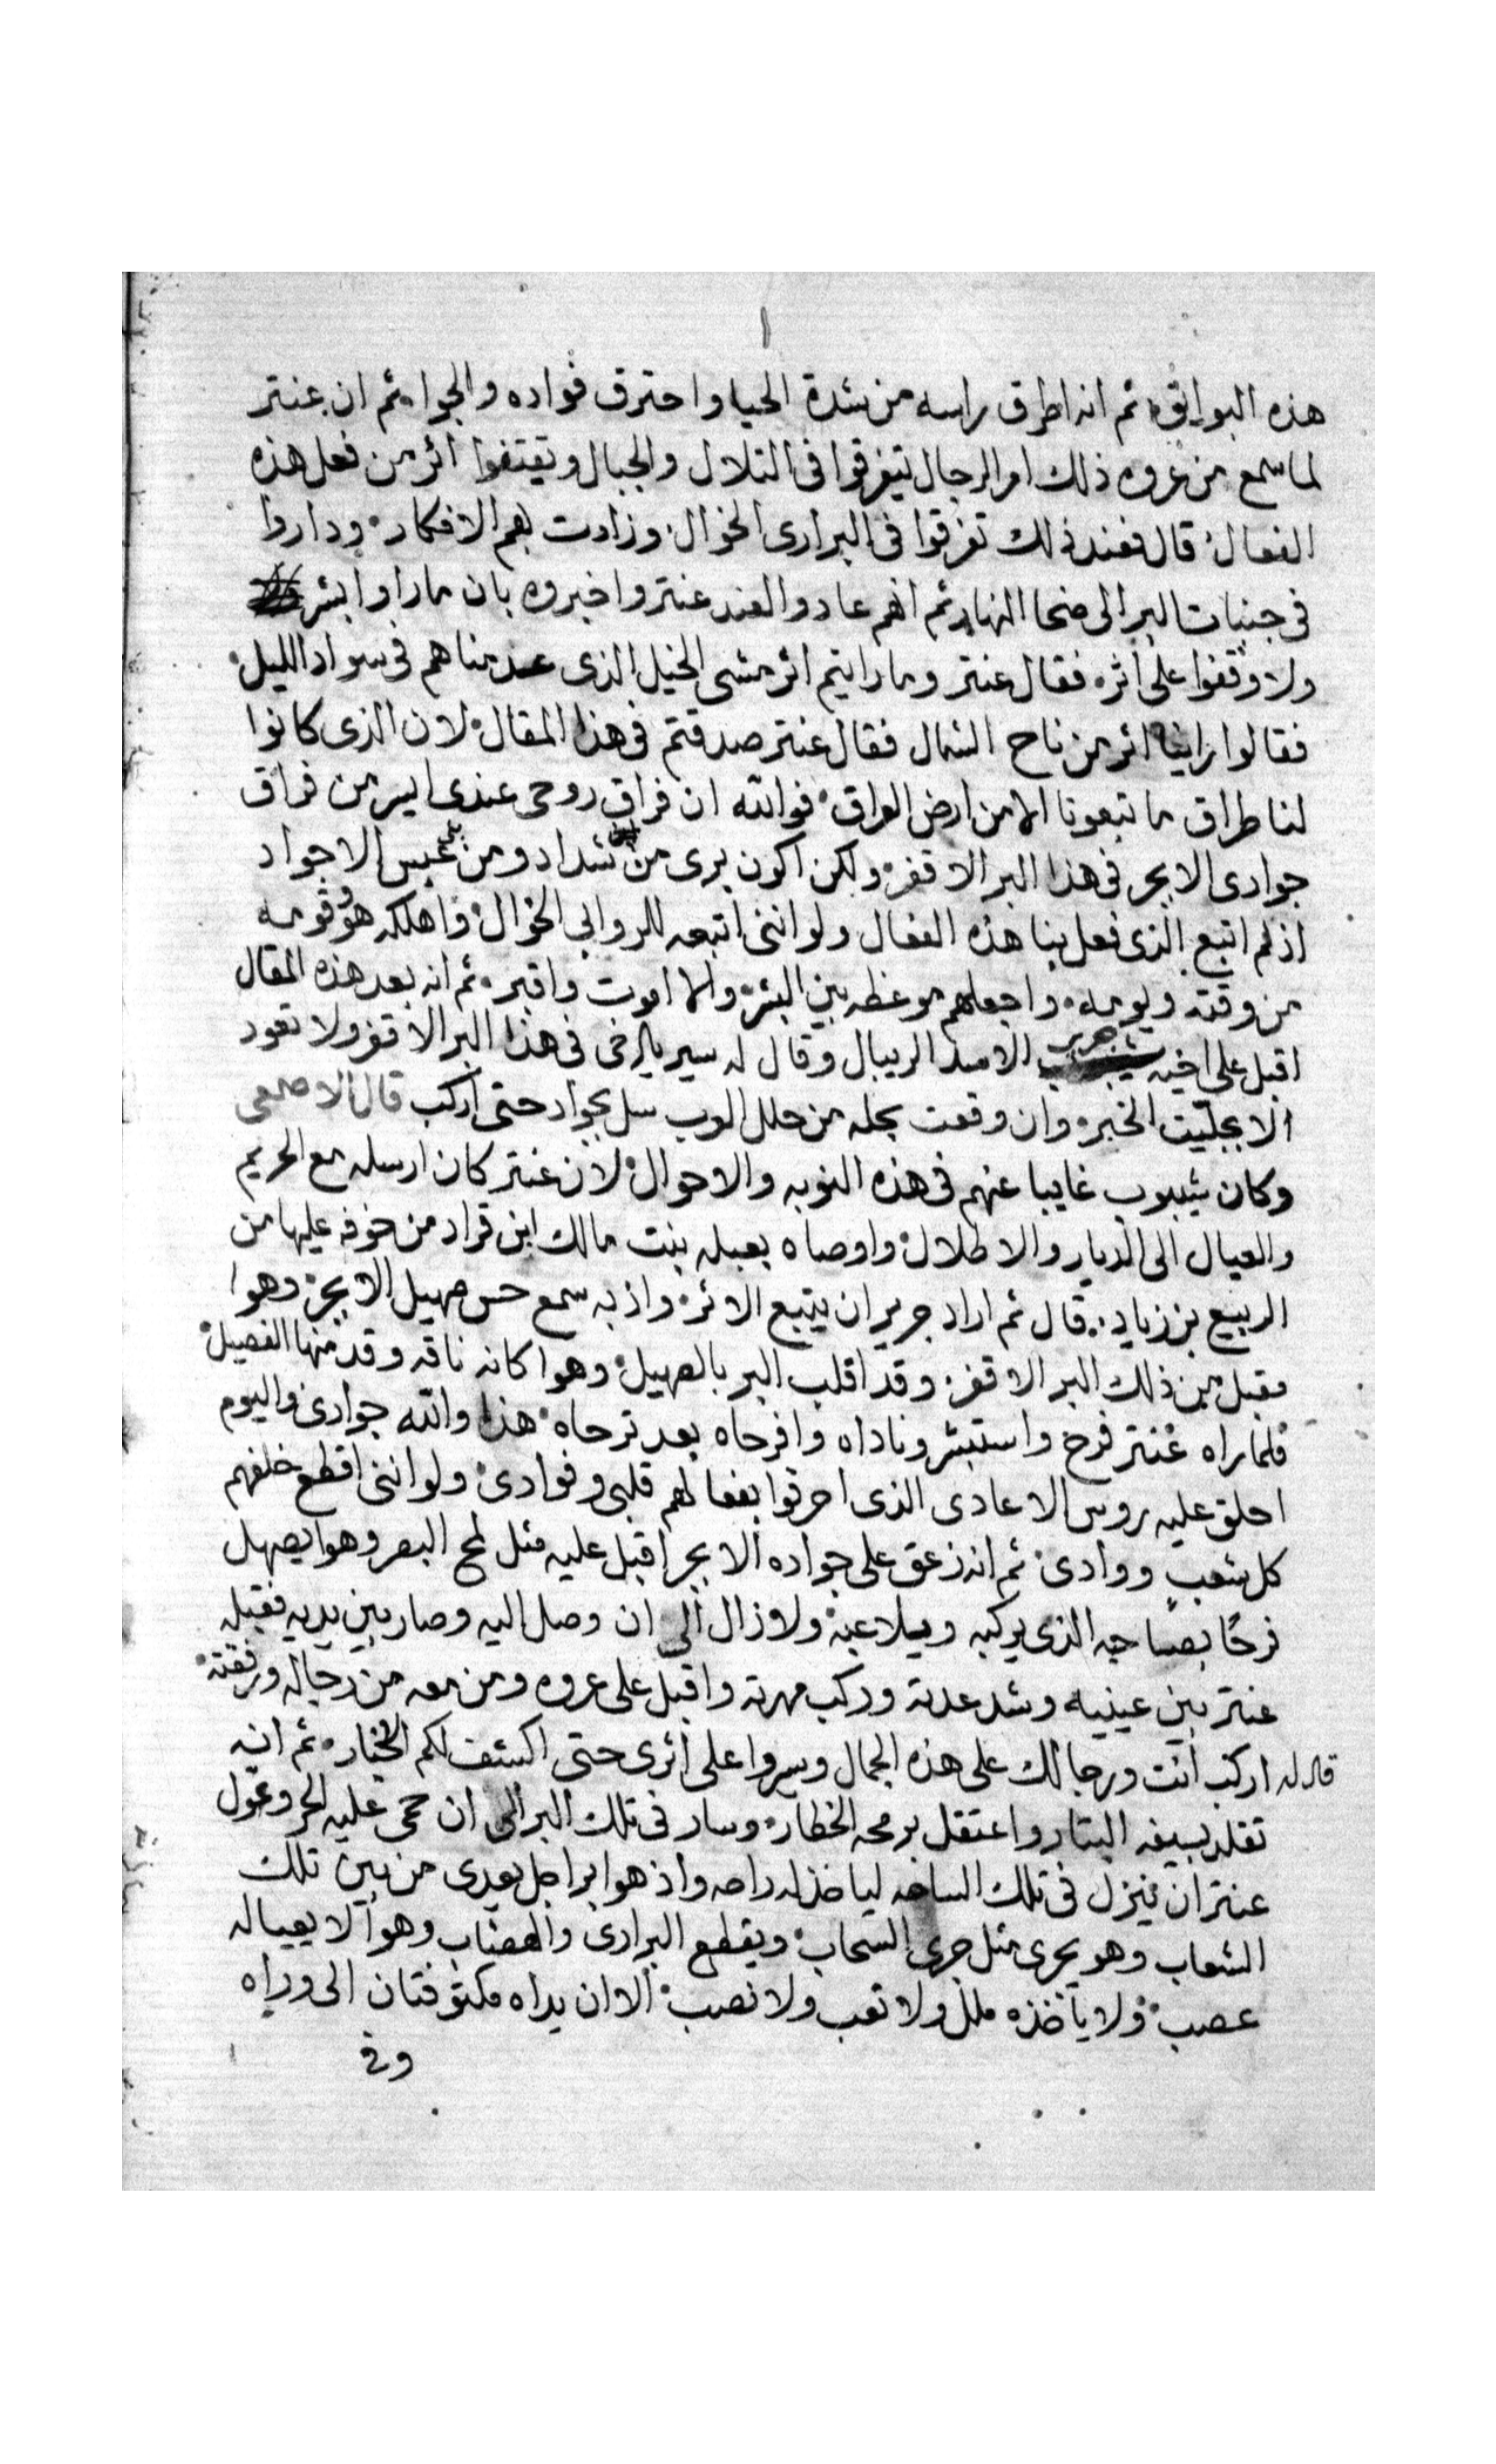 ١
هذه البوايق ثم انه اطرق براسه من شدة الحيا واحترق فواده والجوا ثم ان عنتر
لما سمع من عروه ذلك امر الرجال تيفرقوا فى التلال والجبال ويقتفوا اثر من فعل هذه
الفعال قال فعند ذلك تفرقوا فى البرارى الخوال وزادت بهم الافكار وداروا
فى جنبات البر الى ضحا النهار ثم انهم عادوا لعند عنتر واخبروه بان ما راوا بشر
ولا وقفوا على اثر فقال عنتر وما رايتم اثر مشى الخيل الذى عدمناهم فى سواد الليل
فقالوا راينا اثر من ناح الشمال فقال عنتر صدقتم فى هذا المقال لان الذى كانوا
لنا طراق ما تبعونا الا من ارض العراق فوالله ان فراق روحى عندى ايسر من فراق
جوادى الابجر فى هذا البر الاقفر ولكن اكون برى من شداد ومن بنى عبس الاجواد
اذ لم اتبع الذى فعل بنا هذه الفعال ولو اننى اتبعه للروابى الخوال واهلكه هو وقومه
من وقته ويومه واجعلهم موعظه بين البشر والا اموت واقبر ثم انه بعد هذه المقال
اقبل على اخيه جرير الاسد الريبال وقال له سير يا اخى فى هذا البر الاقفر ولا تعود
الا بجليت الخبر وان وقعت بحله من حلل العرب سل بجواد حتى اركب قال الاصمعى
وكان شيبوب غايبا عنهم فى هذه النوبه والاحوال لان عنتر كان ارسله مع الحريم
والعيال الى الديار والاطلال واوصاه بعبله بنت مالك ابن قراد من خوفه عليها من
الربيع بن زياد قال ثم اراد جرير ان يتبع الاثر واذ به سمع حس صهيل الابجر وهوا
مقبل من ذلك البر الاقفر وقد اقلب البر بالصهيل وهوا كانه ناقه وقد منها الفصيل
فلما راه عنتر فرح واستبشر وناداه وافرحاه بعد ترحاه هذا والله جوادى واليوم
احلق عليه روس الاعادى الذى احرقوا بفعالهم قلبى وفوادى ولو اننى اقطع خلفهم
كل شعب ووادى ثم انه زعق على جواده الابجر اقبل عليه مثل لمح البصر وهوا يصهل
فرحًا بصاحبه الذى يركبه ويلاعبه ولا زال الى ان وصل اليه وصار بين يديه فقبله
عنتر بين عينيه وشد عدته وركب مهرته واقبل على عروه ومن معه من رجاله ورفقته
قال له اركب انت ورجالك على هذه الجمال وسيروا على اثرى حتى اكشف لكم الاخبار ثم انه
تقلد بسيفه البتار واعتقل برمحه الخطار وسار فى تلك البر الى ان حمى عليه الحر وعول
عنتر ان ينزل فى تلك الساعه لياخذ له راحه واذ هوا براجل يعدى من بين تلك
الشعاب وهو يجرى مثل جرى السحاب ويقطع البرارى والهضاب وهوا لا يعيا له
عصب ولا ياخذه ملل ولا تعب ولا نصب الا ان يداه مكتوفتان الى وراه
وفى